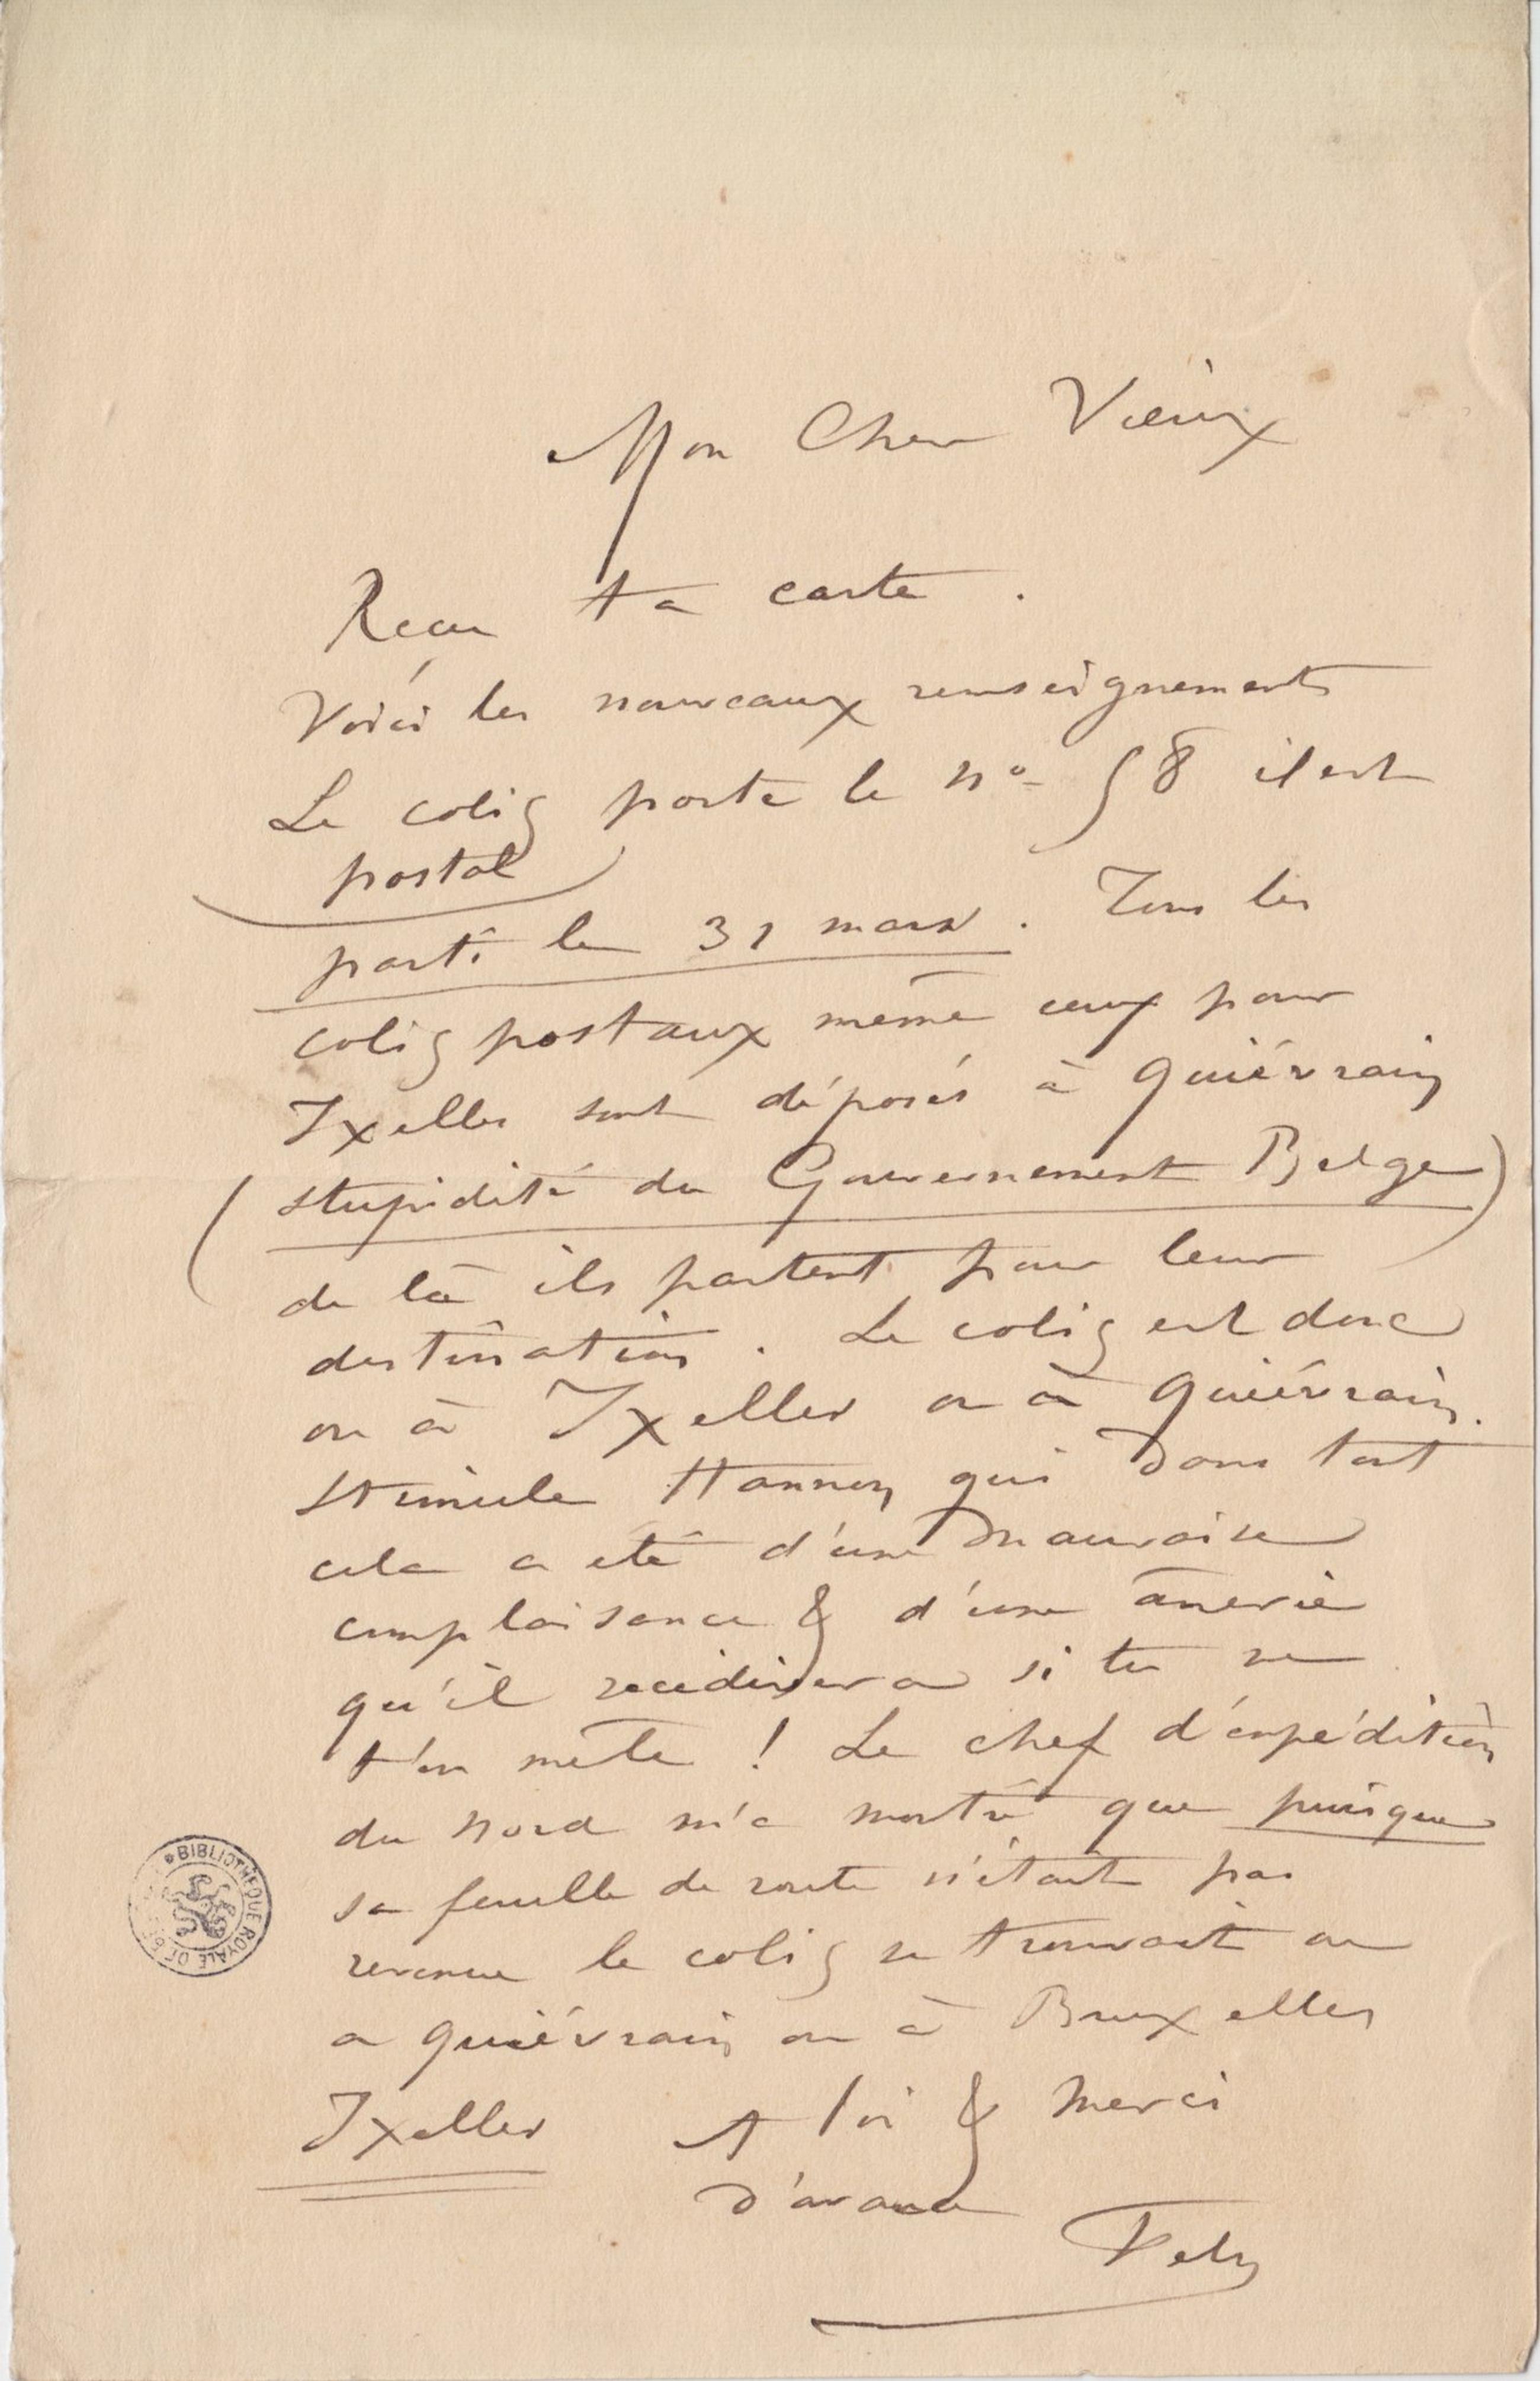 Mon Cher Vieux
Reçu ta carte.
Voici les nouveaux renseignements
Le colis porte le no 58 il est
postal
parti le 31 mars. Tous les
colis postaux même ceux pour
Ixelles sont déposés à Quiévrain
(stupidité du Gouvernement Belge)
de là ils partent pour leur
destination. Le colis est donc
ou à Ixelles ou à Quiévrain.
Stimule Hannon qui dans tout
cela a été d'une mauvaise
complaisance & d'une ânerie
qu'il recidivera si tu ne
t'en mêle ! Le chef d'expédition
du Nord m'a montré que puisque
sa feuille de route n'était pas
revenue le colis se trouvait ou
a Quiévrain ou à Bruxelles
Ixelles A toi & merci
d'avance
Fely
BIBLIOTHÈQUE ROYALE DE